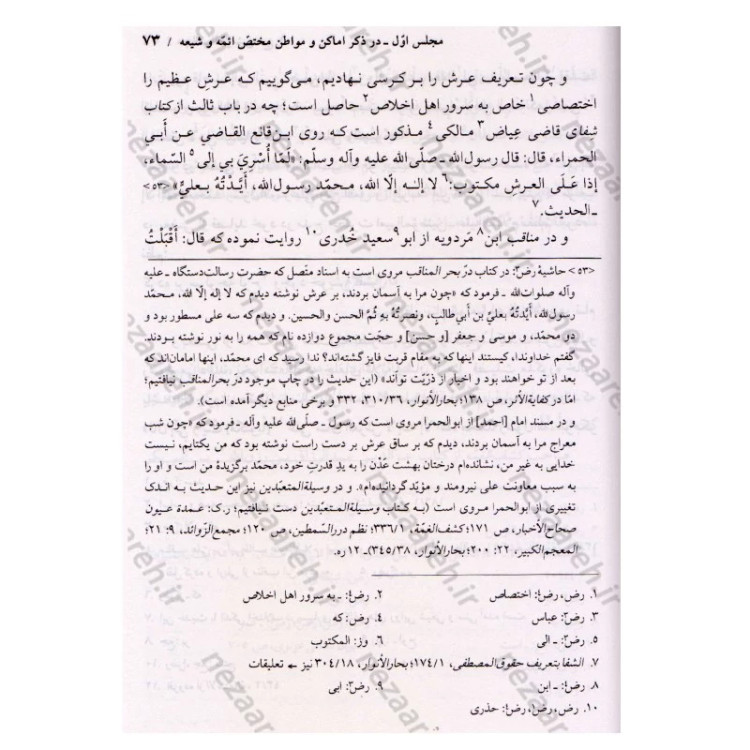 مجلس اوّل ـ در ذکر اماکن و مواطن مختصّ ائمّه و شیعه / ۷۳
و چون تعریف عرش را بر کرسی نهادیم، می‌گوییم که عرشِ عظیم را
اختصاصی۱ خاص به سرور اهل اخلاص۲ حاصل است؛ چه در باب ثالث از کتاب
شِفای قاضی عِیاض۳ مالکی۴ مذکور است که روی ابن‌قانع القاضي عن أَبي
الحمراء، قال: قال رسول‌الله ـ صلّی الله علیه وآله وسلّم: «لَمّا أُسْرِيَ بي إلی۵ السَّماء،
إذا عَلَی العرشِ مکتوب:۶ لا إلـه إلّا الله، محمّد رسول‌الله، أَیَّدْتُهُ بعليٍّ» <۵۳>
ـ الحدیث.۷
و در مناقب ابن۸ مَردویه از ابو۹سعید خُدری۱۰ روایت نموده که قال: أَقْبَلْتُ
<۵۳> حاشیهٔ رض۲: در کتاب درّ بحر المناقب مروی است به اسناد متّصل که حضرت رسالت‌دستگاه ـ علیه
وآله صلوات‌الله ـ فرمود که «چون مرا به آسمان بردند، بر عرش نوشته دیدم که لا إله إلّا الله، محمّد
رسول‌الله، أَیَّدتُهُ بعليّ بن أَبي‌طالب، ونصرتُهُ بِهِ ثُمَّ الحسن والحسین. و دیدم که سه علی مسطور بود و
دو محمّد، و موسی و جعفر [و حسن] و حجّت مجموع دوازده نام که همه را به نور نوشته بودند.
گفتم خداوندا، کیستند اینها که به مقام قربت فایز گشته‌اند؟ ندا رسید که ای محمّد، اینها امامان‌اند که
بعد از تو خواهند بود و اخیار از ذرّیّت تواَند» (این حدیث را در چاپ موجود درّ بحر المناقب نیافتیم؛
امّا در کفایة الأثر، ص ۱۳۸؛ بحار الأنوار، ۳۱۰/۳۶، ۳۳۲ و برخی منابع دیگر آمده است).
و در مسند امام [احمد] از ابوالحمرا مروی است که رسول ـ صلّی الله علیه وآله ـ فرمود که «چون شب
معراج مرا به آسمان بردند، دیدم که بر ساق عرش بر دست راست نوشته بود که من یکتایم، نیست
خدایی به غیر من، نشانده‌ام درختان بهشت عَدْن را به یدِ قدرتِ خود، محمّد برگزیدهٔ من است و او را
به سبب معاونت علی نیرومند و مؤیّد گردانیده‌ام». و در وسیلة المتعبّدین نیز این حدیث به اندک
تغییری از ابوالحمرا مروی است (به کتاب وسیلة المتعبّدین دست نیافتیم؛ ر.ک: عمدة عیون
صحاح الأخبار، ص ۱۷۱؛ کشف الغمّة، ۳۳۶/۱؛ نظم درر السّمطین، ص ۱۲۰؛ مجمع الزّوائد، ۹: ۲۱؛
المعجم الکبیر، ۲۲: ۲۰۰؛ بحار الأنوار، ۳۴۵/۳۸)ـ ۱۲ ره.
۱. رض، رض۱: اختصاص ۲. رض۱: ـ به سرور اهل اخلاص
۳. رض۲: عباس ۴. رض۱: که
۵. رض۲: ـ الی ۶. وز: المکتوب
۷. الشفا بتعریف حقوق المصطفی، ۱۷۴/۱؛ بحار الأنوار، ۳۰۴/۱۸ نیز ← تعلیقات
۸. رض۱: ـ ابن ۹. رض۲: ابی
۱۰. رض، رض۱، رض۲: حذری
nezaareh.ir